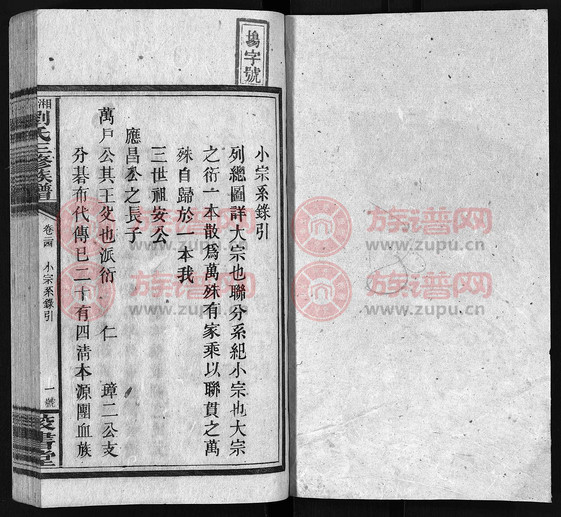 塲字號
小宗系錄引
列總圖詳大宗也聯分系紀小宗也大宗
之衍一本散爲萬殊有家乘以聯貫之萬
殊自歸於一本我
三世祖安公
應昌公之長子
萬戶公其王父也派衍 仁 璋二公支
分碁布代傳已二十有四淸本源團血族
湘
劉氏三修族譜
卷 小宗系錄引
一號
書堂
族谱网
www.zupu.cn
族谱网
www.zupu.cn